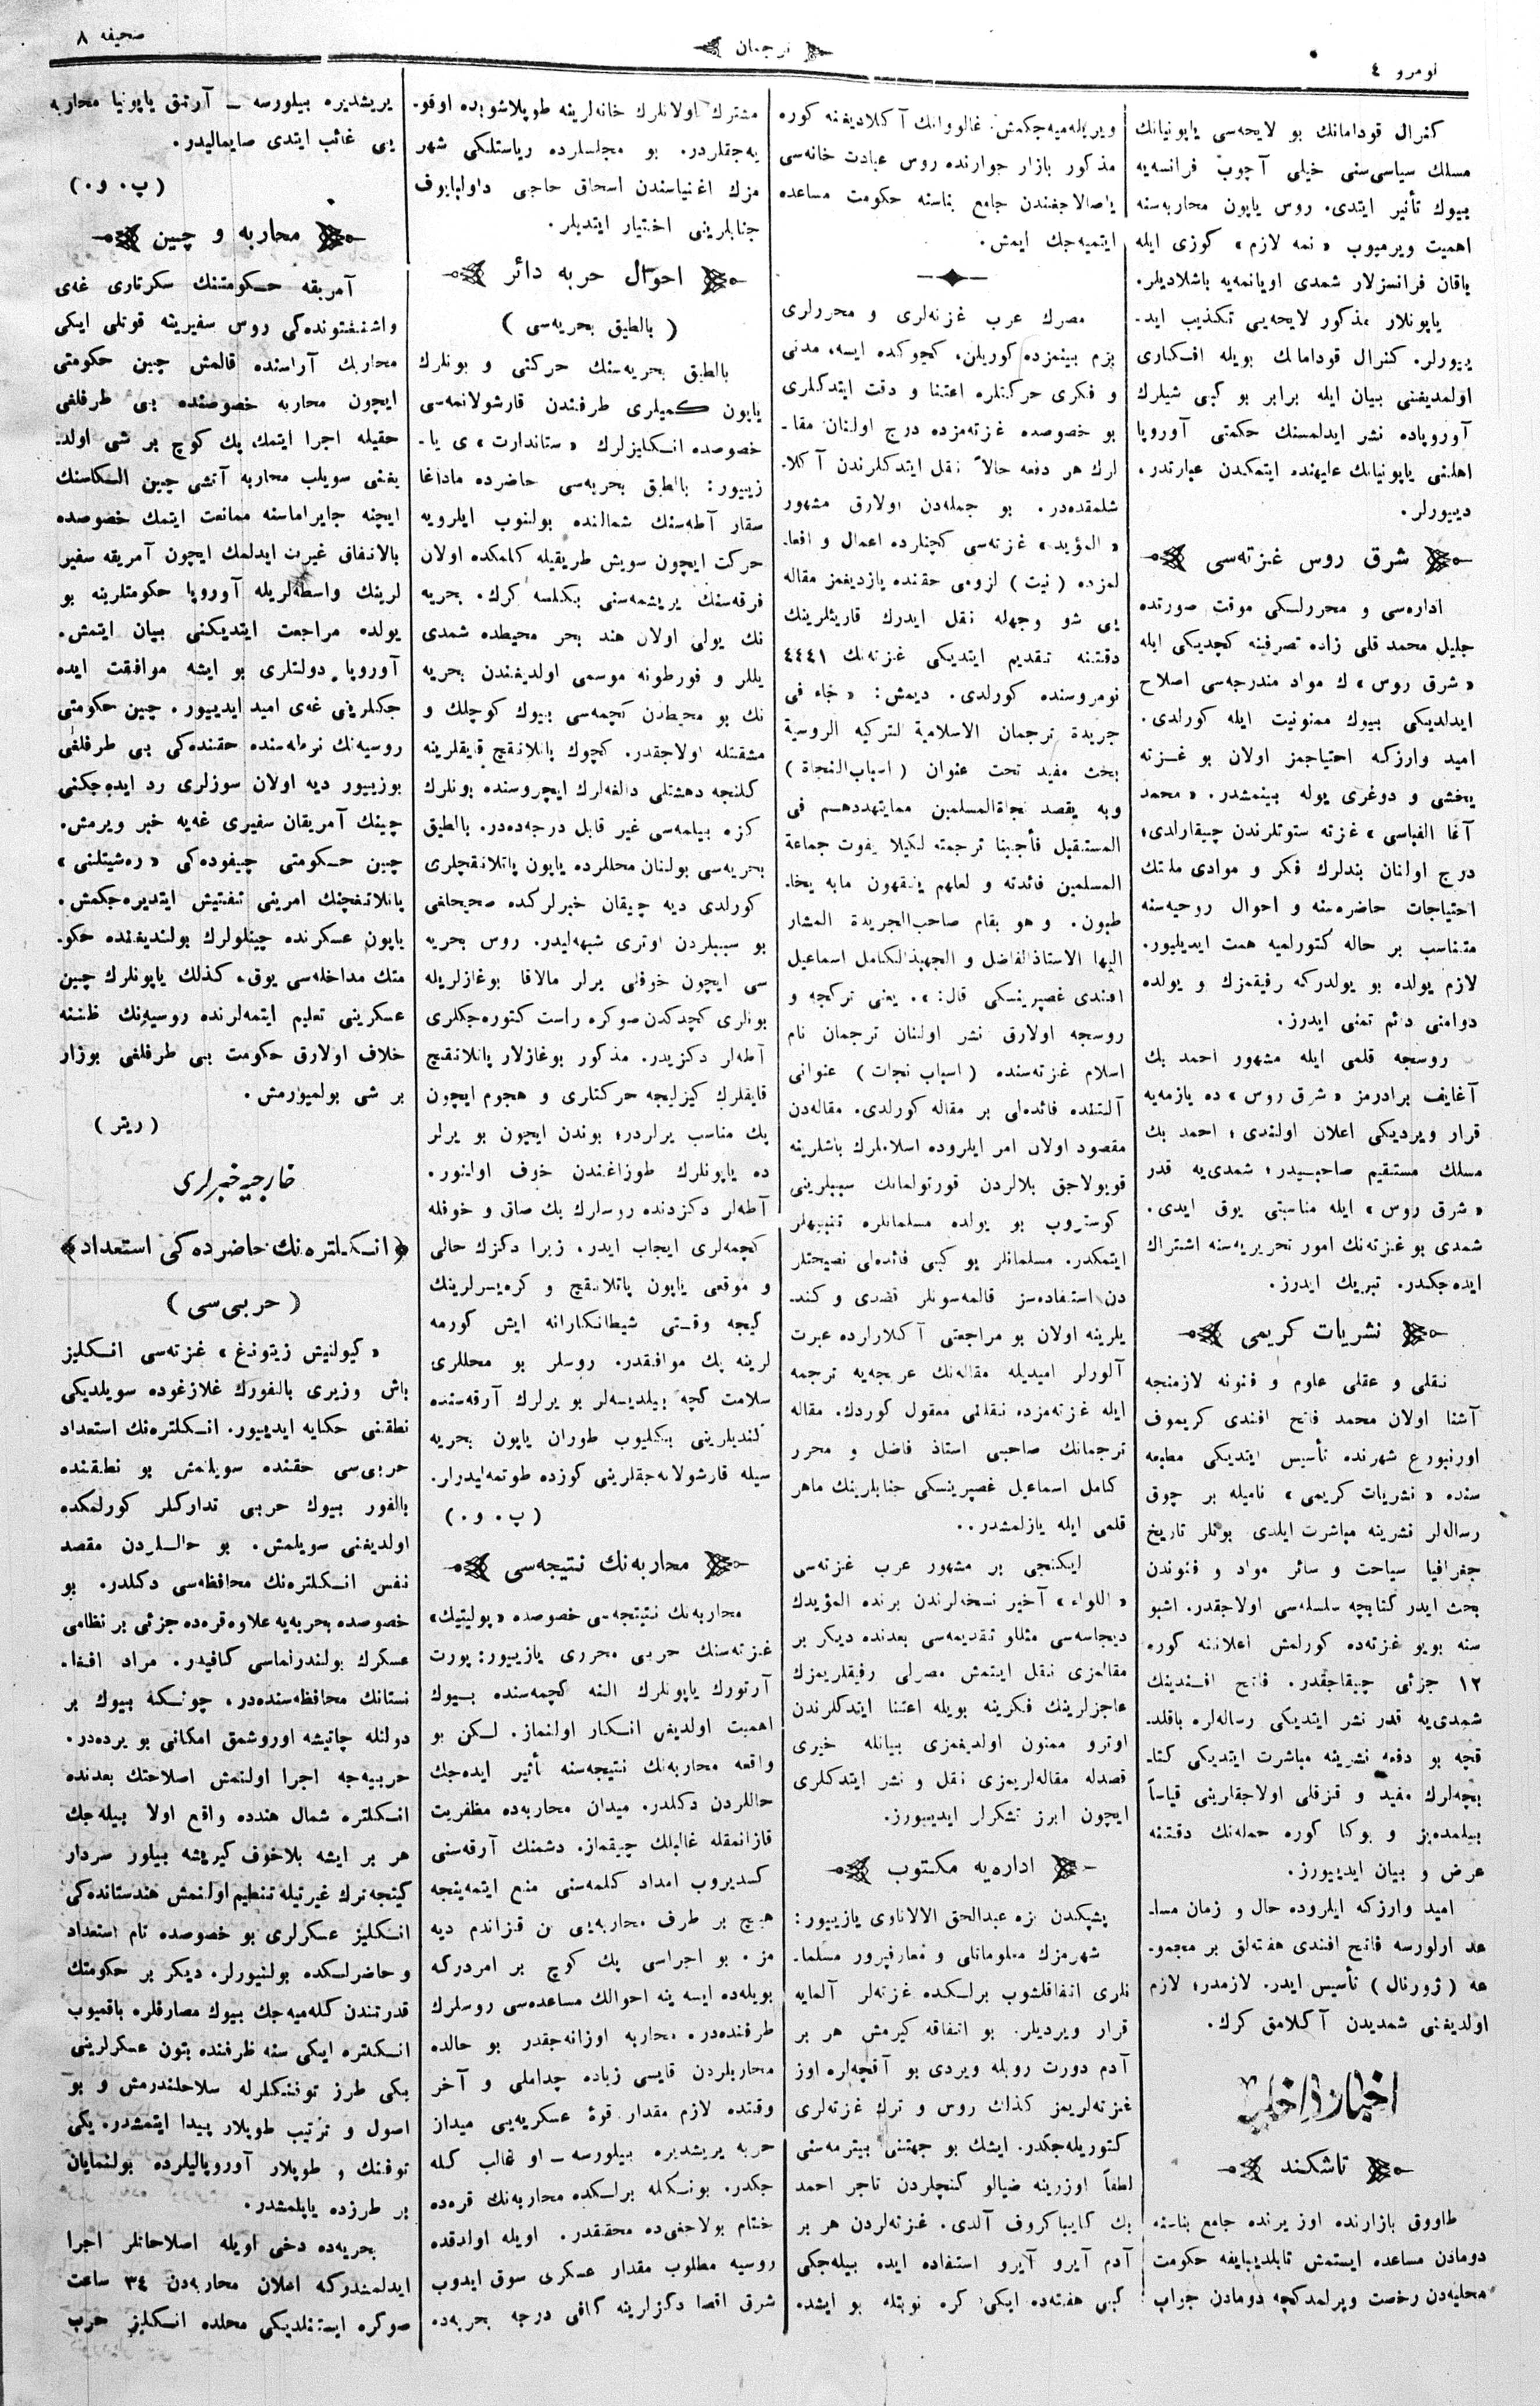 نومرو ٤
ترجمان
صحيفه ٨
كنرال قودامانك بو لايحه‌سى ياپونيانك
مسلك سياسى‌سنى خيلى آچوب فرانسه‌يه
بيوك تأثير ايتدى. روس ياپون محاربه‌سنه
اهميت ويرميوب «نمه لازم» كوزى ايله
باقان فرانسزلار شمدى اويانمه‌يه باشلاديلر.
ياپونلار مذكور لايحه‌يى تكذيب ايد-
ييورلر. كنرال قودامانك بويله افكارى
اولمديغنى بيان ايله برابر بو كبى شيلرك
آوروپاده نشر ايدلمسنك حكمتى آوروپا
اهلنى ياپونيانك عليهنده ايتمكدن عبارتدر،
دييورلر.
شرق روس غزته‌سى
اداره‌سى و محررلكى موقت صورتده
جليل محمد قلى زاده تصرفينه كچديكى ايله
«شرق روس» ك مواد مندرجه‌سى اصلاح
ايدلديكى بيوك ممنونيت ايله كورلدى.
اميد واركه احتياجمز اولان بو غزته
يخشى و دوغرى يوله بينمشدر. «محمد
آغا الفباسى» غزته ستوتلرندن چيقارلدى؛
درج اولنان بندلرك فكر و موادى ملتك
احتياجات حاضره‌سنه و احوال روحيه‌سنه
متناسب بر حاله كتورلميه همت ايديليور.
لازم يولده بو يولدركه رفيقمزك و يولده
دوامنى دائم تمنى ايدرز.
روسجه قلمى ايله مشهور احمد بك
آغايف برادرمز «شرق روس» ده يازمه‌يه
قرار ويرديكى اعلان اولندى؛ احمد بك
مسلك مستقيم صاحبيدر؛ شمدى‌يه قدر
«شرق روس» ايله مناسبتى يوق ايدى.
شمدى بو غزته‌نك امور تحريريه‌سنه اشتراك
ايده‌جكدر. تبريك ايدرز.
نشريات كريمى
نقلى و عقلى علوم و فنونه لازمنجه
آشنا اولان محمد فاتح افندى كريموف
اورنبورغ شهرنده تأسيس ايتديكى مطبعه
سنده «نشريات كريمى» ناميله بر چوق
رساله‌لر نشرينه مباشرت ايلدى بونلر تاريخ
جغرافيا سياحت و سائر مواد و فنوندن
بحث ايدر كتابچه سلسله‌سى اولاجقدر. اشبو
سنه بويو غزته‌ده كورلمش اعلاننه كوره
١٢ جزئى چيقاجقدر. فاتح افندينك
شمدى‌يه قدر نشر ايتديكى رساله‌لره باقلد-
قچه بو دفعه نشرينه مباشرت ايتديكى كتا-
بچه‌لرك مفيد و قزقلى اولاجقارينى قياساً
بيلمده‌يز و بوكا كوره جمله‌نك دقتنه
عرض و بيان ايدييورز.
اميد واركه ايلروده حال و زمان مسا-
عد اولورسه فاتح افندى هفته‌لق بر مجمو-
عه (ژورنال) تأسيس ايدر. لازمدر؛ لازم
اولديغنى شمديدن آكلامق كرك.
اخبار داخليه
تاشكند
طاووق بازارنده اوز يرنده جامع بناسنه
دومادن مساعده ايستمش تابلديبايفه حكومت
محليه‌دن رخصت ويرلمدكچه دومادن جواب
ويريله‌ميه‌جكمش. غالووانك آكلاديغنه كوره
مذكور بازار جوارنده روس عبادت خانه‌سى
ياصالاجغندن جامع بناسنه حكومت مساعده
ايتميه‌جك ايمش.
مصرك عرب غزته‌لرى و محررلرى
بزم بينمزده كوريلن، كچوكده ايسه، مدنى
و فكرى حركتلره اعتنا و دقت ايتدكلرى
بو خصوصده غزته‌مزده درج اولنان مقا-
لرك هر دفعه حالاً نقل ايتدكلرندن آكلا-
شلمقده‌در. بو جمله‌دن اولارق مشهور
«المؤيد» غزته‌سى كچنلرده اعمال و افعا-
لمزده (نيت) لزومى حقنده يازديغمز مقاله
يى شو وجهله نقل ايدرك قارئلرينك
دقتنه تقديم ايتديكى غزته‌نك ٤٤٤١
نومروسنده كورلدى. ديمش: «جاء فى
جريدة ترجمان الاسلامية التركيه الروسية
بحث مفيد تحت عنوان (اسباب‌النجاة)
وبه يقصد نجاةالمسلمين ممايتهددهم فى
المستقبل فأجبنا ترجمته لكيلا يفوت جماعة
المسلمين فائدته و لعلهم يتفقهون مابه يخا-
طبون. و هو بقلم صاحب‌الجريدة المشار
اليها الاستاذالفاضل و الجهبذالكامل اسماعيل
افندى غصپرينسكى قال:». يعنى تركجه و
روسجه اولارق نشر اولنان ترجمان نام
اسلام غزته‌سنده (اسباب نجات) عنوانى
آلتنده فائده‌لى بر مقاله كورلدى. مقاله‌دن
مقصود اولان امر ايلروده اسلاملرك باشلرينه
قوبولاجق بلالردن قورتولمانك سببلرينى
كوستروب بو يولده مسلمانلره تنبيهلر
ايتمكدر. مسلمانلر بو كبى فائده‌لى نصيحتلر
دن استفاده‌سز قالمه‌سونلر قصدى و كند-
يلرينه اولان بو مراجعتى آكلارارده عبرت
آلورلر اميديله مقاله‌نك عربجه‌يه ترجمه
ايله غزته‌مزده نقلانى معقول كوردك. مقاله
ترجمانك صاحبى استاذ فاضل و محرر
كامل اسماعيل غصپرينسكى جنابلرينك ماهر
قلمى ايله يازلمشدر..
ايكنجى بر مشهور عرب غزته‌سى
«اللواء» آخير نسخه‌لرندن برنده المؤيدك
ديجاسه‌سى مثللو تقديمه‌سى بعدنده ديكر بر
مقالمزى نقل ايتمش مصرلى رفيقلريمزك
عاجزلرينك فكرينه بويله اعتنا ايتدكلرندن
اوترو ممنون اولديغمزى بيانله خيرى
قصدله مقاله‌لريمزى نقل و نشر ايتدكلرى
ايچون ابرز تشكرلر ايدييورز.
اداره‌يه مكتوب
پشپكدن بزه عبدالحق الالاناوى يازييور:
شهرمزك معلوماتلى و معارفپرور مسلما-
نلرى اتفاقلشوب برلكده غزته‌لر آلمايه
قرار ويرديلر. بو اتفاقه كيرمش هر بر
آدم دورت روبله ويردى بو آقچه‌لره اوز
غزته‌لريمز كذلك روس و ترك غزته‌لرى
كتوريله‌جكدر. ايشك بو جهتنى بيترمه‌سنى
لطفاً اوزرينه ضيالو كنجلردن تاجر احمد
بك كايباكروف آلدى. غزته‌لردن هر بر
آدم آيرو آيرو استفاده ايده بيله‌جكى
كبى هفته‌ده ايكى كره نوبتله بو ايشده
مشترك اولانلرك خانه‌لرينه طوپلاشوبده اوقو-
يه‌جقلردر. بو مجلسلرده رياستلكى شهر
مزك اغنياسندن اسحاق حاجى داولبايوف
جنابلرينى اختيار ايتديلر.
احوال حربه دائر
(بالطيق بحريه‌سى)
بالطيق بحريه‌سنك حركتى و بونلرك
ياپون كميلرى طرفندن قارشولانمه‌سى
خصوصده انكليزلرك «ستاندارت» ى يا-
زييور: بالطيق بحريه‌سى حاضرده ماداغا
سقار آطه‌سنك شمالنده بولنوب ايلرويه
حركت ايچون سويش طريقيله كلمكده اولان
فرقه‌سنك يريشمه‌سنى بكلسه كرك. بحريه
نك يولى اولان هند بحر محيطده شمدى
يللر و فورطونه موسمى اولديغندن بحريه
نك بو محيطدن كچمه‌سى بيوك كوچلك و
مشقتله اولاجقدر. كچوك پاتلانقچ قايقلرينه
كلنجه دهشتلى دالغه‌لرك ايچروسنده بونلرك
كزه بيلمه‌سى غير قابل درجه‌ده‌در. بالطيق
بحريه‌سى بولنان محللرده ياپون پاتلانقچلرى
كورلدى ديه چيقان خبرلركده صحيحلغى
بو سببلردن اوترى شبهه‌ليدر. روس بحريه
سى ايچون خوفلى يرلر مالاقا بوغازلريله
بونلرى كچدكدن صوكره راست كتوره‌جكلرى
آطه‌لر دكزيدر. مذكور بوغازلار پاتلانقچ
قايقلرك كيزليجه حركتلرى و هجوم ايچون
پك مناسب يرلردر؛ بوندن ايچون بو يرلر
ده ياپونلرك طوزاغندن خوف اولنور.
آطه‌لر دكزدنده روسلرك پك صاق و خوفله
كچمه‌لرى ايجاب ايدر. زيرا دكزك حالى
و موقعى ياپون پاتلانقچ و كره‌يسرلرينك
كيجه وقتى شيطانكارانه ايش كورمه
لرينه پك موافقدر. روسلر بو محللرى
سلامت كچه بيلديسه‌لر بو يرلرك آرقه‌سنده
كنديلرينى بكليوب طوران ياپون بحريه
سيله قارشولانه‌جقلرينى كوزده طوتمه‌ليدرلر.
(پ. و.)
محاربه‌نك نتيجه‌سى
محاربه‌نك نتيتجه‌سى خصوصده «پوليتيك»
غزته‌سنك حربى محررى يازييور: پورت
آرتورك ياپونلرك النه كچمه‌سنده بيوك
اهميت اولديغى انكار اولنماز. لكن بو
واقعه محاربه‌نك نتيجه‌سنه تأثير ايده‌جك
حاللردن دكلدر. ميدان محاربه‌ده مظفريت
قازانمقله غالبلك چيقماز. دشمنك آرقه‌سنى
كسديروب امداد كلمه‌سنى منع ايتمه‌ينجه
هيچ بر طرف محاربه‌يى بن قزاندم ديه
مز. بو اجراسى پك كوچ بر امردركه
بويله‌ده ايسه ينه احوالك مساعده‌سى روسلرك
طرفنده‌در. محاربه اوزانه‌جقدر بو حالده
محاربلردن قايسى زياده چداملى و آخر
وقتده لازم مقدار قوۀ عسكريه‌يى ميدان
حربه يريشديره بيلورسه - او غالب كله
جكدر. بونكله برلكده محاربه‌نك قره‌ده
ختام بولاجغى‌ده محققدر. اويله اولدقده
روسيه مطلوب مقدار عسكرى سوق ايدوب
شرق اقصا دكزلرينه كافى درجه بحريه‌ده
يريشديره بيلورسه - آرتق ياپونيا محاربه
يى غائب ايتدى صايماليدر.
(پ. و.)
محاربه و چين
آمريقه حكومتنك سكرتارى غه‌ى
واشنغتونده‌كى روس سفيرينه قوتلى ايكى
محاربك آراسنده قالمش چين حكومتى
ايچون محاربه خصوصنده بى طرفلغى
حقيله اجرا ايتمك، پك كوچ بر شى اولد-
يغنى سويلب محاربه آتشى چين الكاسنك
ايچنه جايراماسنه ممانعت ايتمك خصوصده
بالاتفاق غيرت ايدلمك ايچون آمريقه سفير
لرينك واسطه‌لريله آوروپا حكومتلرينه بو
يولده مراجعت ايتديكنى بيان ايتمش.
آوروپا دولتلرى بو ايشه موافقت ايده
جكلرينى غه‌ى اميد ايدييور. چين حكومتى
روسيه‌نك نوطه‌سنده حقنده‌كى بى طرفلغى
بوزييور ديه اولان سوزلرى رد ايده‌جكنى
چينك آمريقان سفيرى غه‌يه خبر ويرمش.
چين حكومتى چيفوده‌كى «ره‌شيتلنى»
پاتلانغچنك امرينى تفتيش ايتديره‌جكمش.
ياپون عسكرنده چينلولرك بولنديغنده حكو-
متك مداخله‌سى يوق، كذلك ياپونلرك چين
عسكرينى تعليم ايتمه‌لرنده روسيه‌نك ظننه
خلاف اولارق حكومت بى طرفلغى بوزار
بر شى بولميورمش.
(ريتر)
خارجيه خبرلرى
﴿انكلتره‌نك حاضرده‌كى استعداد﴾
(حربى‌سى)
«كيولنيش زيتونغ» غزته‌سى انكليز
باش وزيرى بالفورك غلازغوده سويلديكى
نطقنى حكايه ايدييور. انكلتره‌نك استعداد
حربى‌سى حقنده سويلنمش بو نطقنده
بالفور بيوك حربى تداركلر كورلمكده
اولديغنى سويلمش. بو حاللردن مقصد
نفس انكلتره‌نك محافظه‌سى دكلدر. بو
خصوصده بحريه‌يه علاوه قره‌ده جزئى بر نظامى
عسكرك بولندرلماسى كافيدر. مراد افغا-
نستانك محافظه‌سنده‌در، چونكه بيوك بر
دولتله چاتيشه اوروشمق امكانى بو يرده‌در.
حربيه‌جه اجرا اولنمش اصلاحتك بعدنده
انكلتره شمال هندده واقع اولا بيله‌جك
هر بر ايشه بلاخوف كيريشه بيلور سردار
كيتجه‌نرك غيرتيله تنظيم اولنمش هندستانده‌كى
انكليز عسكرلرى بو خصوصده تام استعداد
و حاضرلكده بولنيورلر. ديكر بر حكومتك
قدرتندن كله‌ميه‌جك بيوك مصارفلره باقميوب
انكلتره ايكى سنه ظرفنده بتون عسكرلرينى
يكى طرز توفنكلرله سلاحلندرمش و بو
اصول و ترتيب طوپلار پيدا ايتمشدر. يكى
توفنك و طوپلار آوروپاليلرده بولنمايان
بر طرزده ياپلمشدر.
بحريه‌ده دخى اويله اصلاحاتلر اجرا
ايدلمشدركه اعلان محاربه‌دن ٣٤ ساعت
صوكره ايستنلديكى محلده انكليز حرب